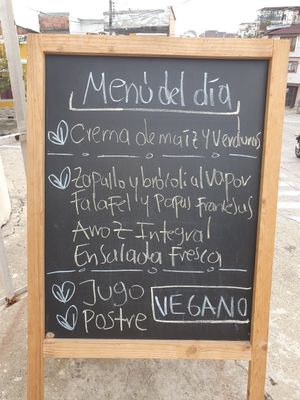 Menú del día
Crema de maíz y Verduras
Zapallo y brócoli al vapor
Falafel y Papas Francesas
Arroz Integral
Ensalada Fresca
Jugo
VEGANO
Postre